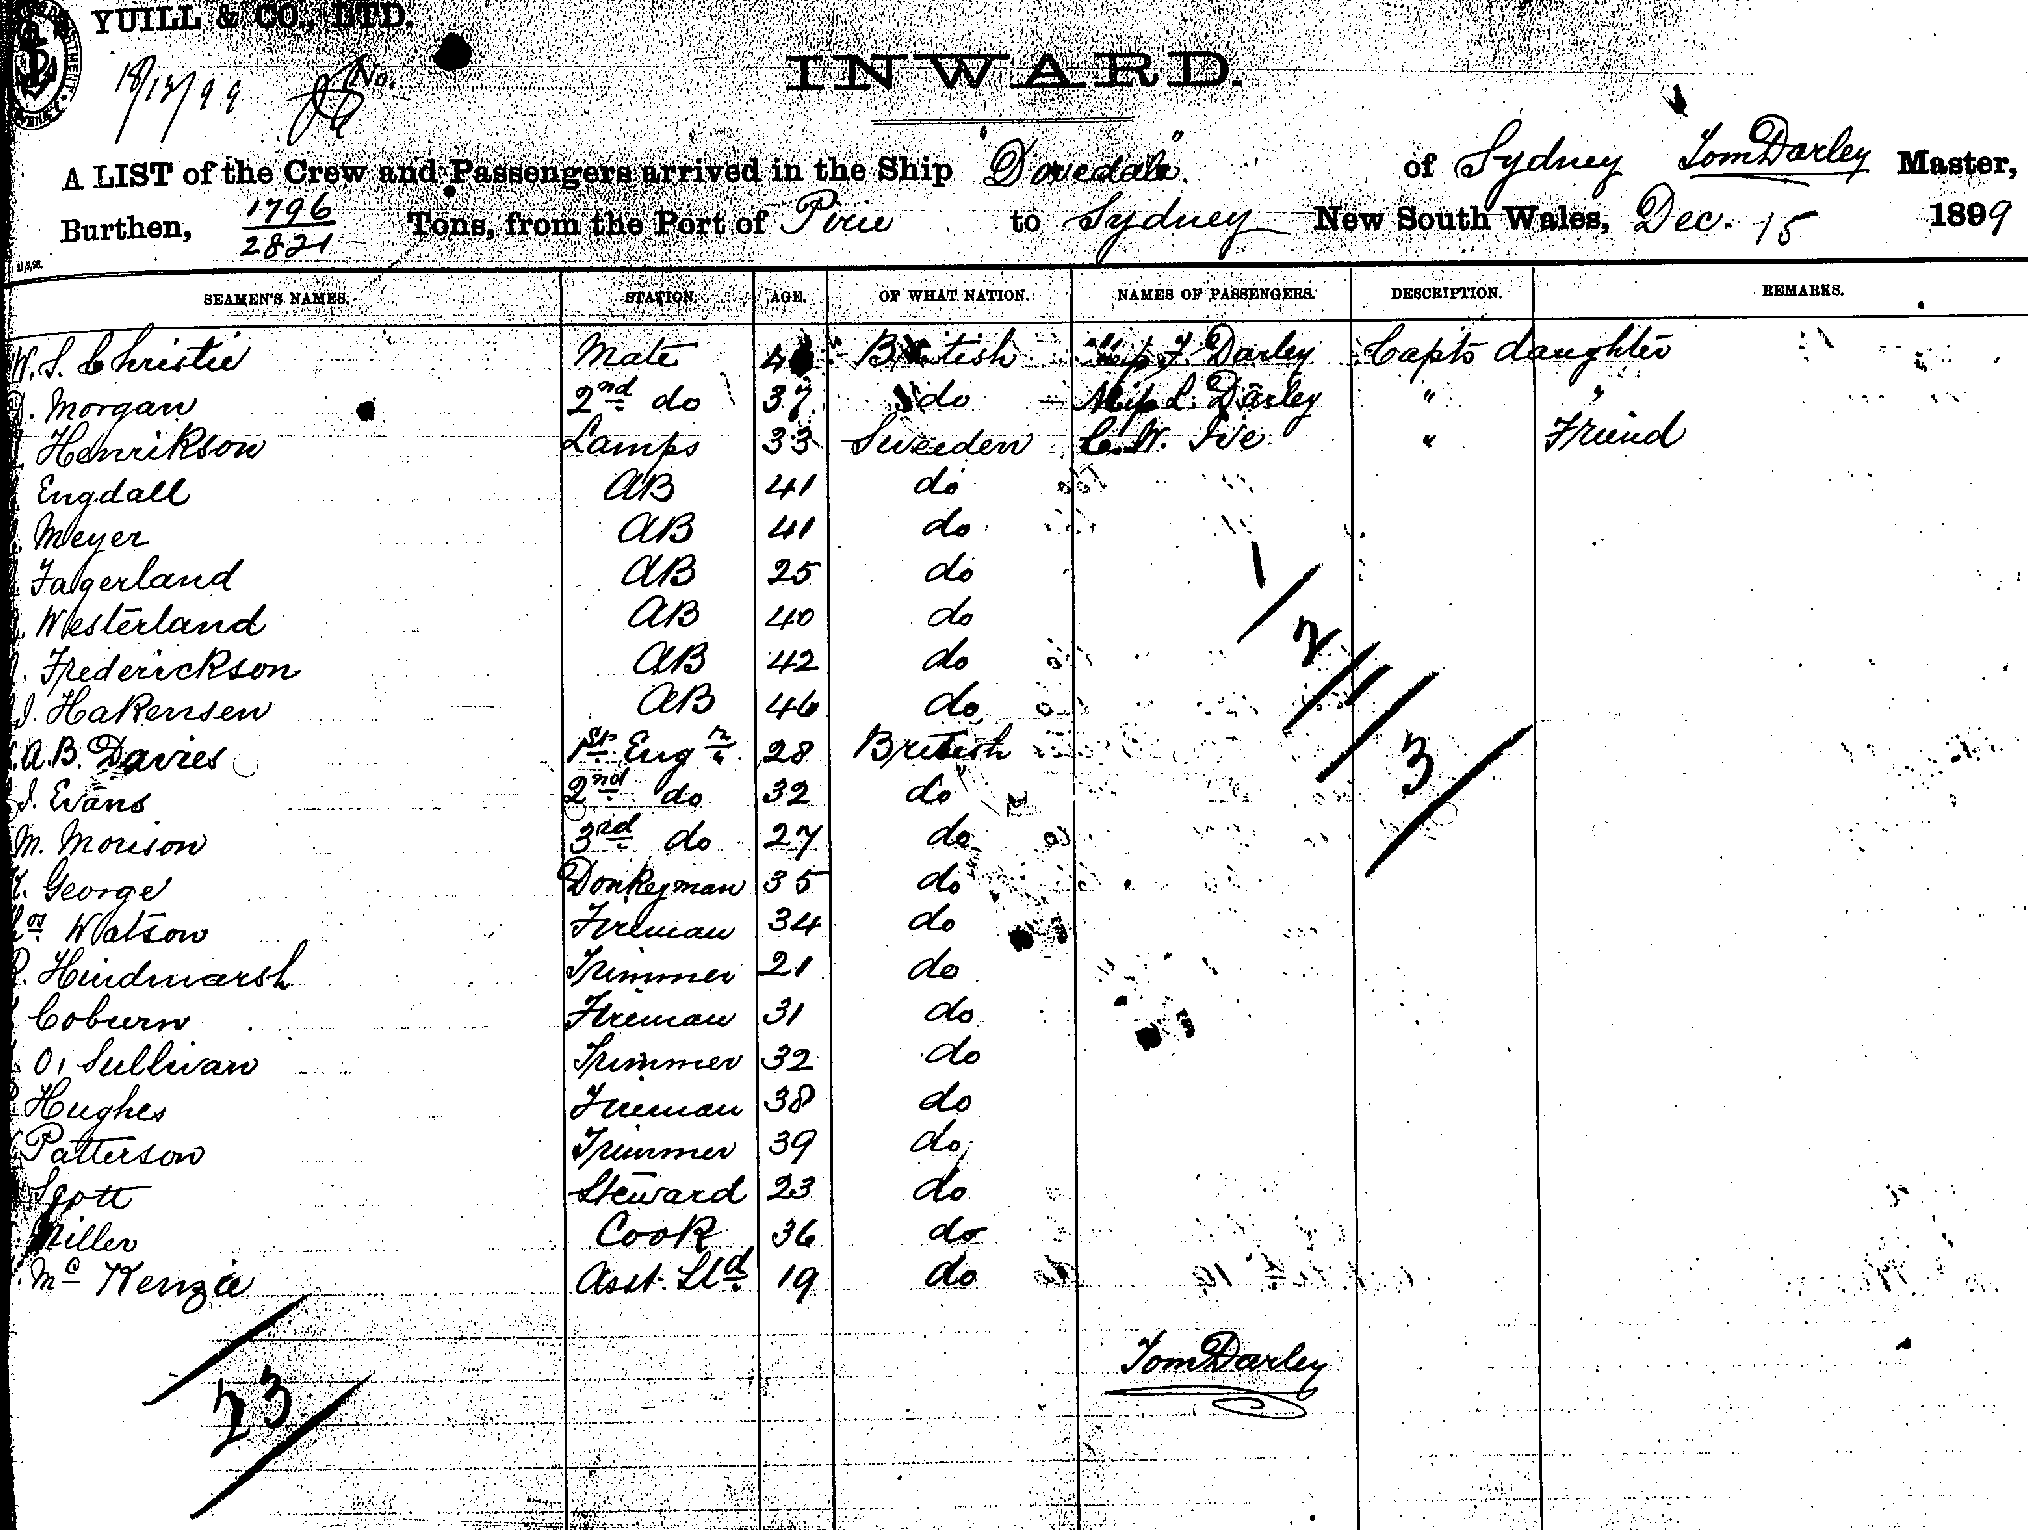 YUILL & CO., LTD.
18/12/99 No.
INWARD.
A LIST of the Crew and Passengers arrived in the Ship "Dovedale" of Sydney Tom Darley Master,
Burthen, 1796 / 2821 Tons, from the Port of Pirie to Sydney New South Wales, Dec. 15 1899
SEAMEN'S NAMES. STATION. AGE. OF WHAT NATION. NAMES OF PASSENGERS. DESCRIPTION. REMARKS.
W. S. Christie Mate British Miss F. Darley Capts daughter
Morgan 2nd do 37 do Miss L. Darley " "
Henrikson Lamps 33 Sweeden C. W. Ive " Friend
Engdall AB 41 do
Meyer AB 41 do
Fagerland AB 25 do
Westerland AB 40 do
Frederickson AB 42 do
J. Hakensen AB 46 do
A. B. Davies 1st Engr 28 British
J. Evans 2nd do 32 do
M. Morison 3rd do 27 do
George Donkeyman 35 do
Watson Fireman 34 do
R. Hindmarsh Trimmer 21 do
Coburn Fireman 31 do
O'Sullivan Trimmer 32 do
Hughes Fireman 38 do
Patterson Trimmer 39 do
Scott Steward 23 do
Miller Cook 36 do
Mc Kenzie Asst. Std 19 do
1/2/1/3/
Tom Darley
23